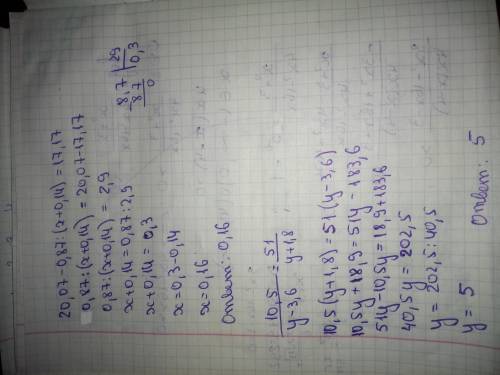 20,07-0,87:(x+0,14)=17,17
0,87:(x+0,14)=20,07-17,17
0,87:(x+0,14)=2,9
x+0,14=0,87:2,9
x+0,14=0,3
x=0,3-0,14
x=0,16
Ответ: 0,16
8,7 29
87 0,3
0
10,5/y-3,6=51/y+1,8
10,5(y+1,8)=51(y-3,6)
10,5y+18,9=51y-183,6
51y-10,5y=18,9+183,6
40,5y=202,5
y=202,5:40,5
y=5
Ответ: 5